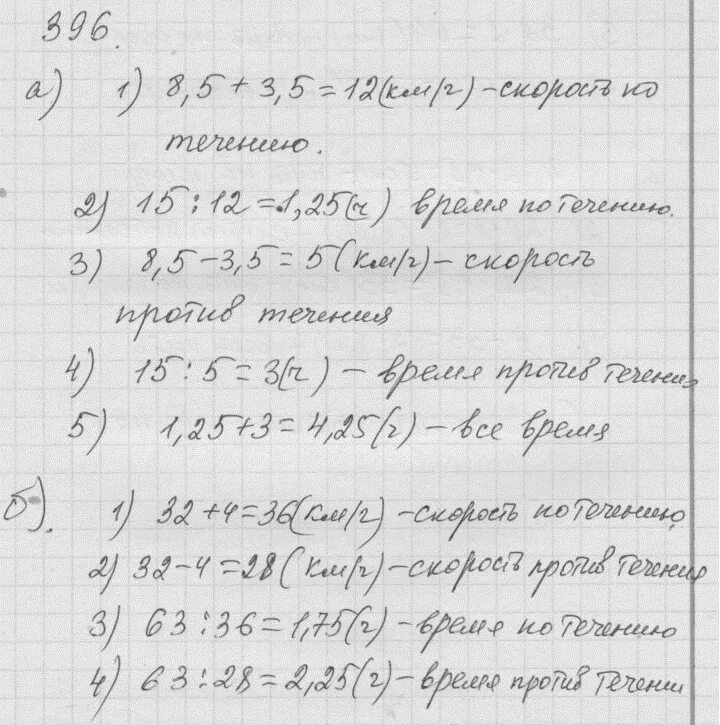 396.
а) 1) 8,5 + 3,5 = 12 (км/г) - скорость по
течению.
2) 15 : 12 = 1,25 (ч) время по течению.
3) 8,5 - 3,5 = 5 (км/г) - скорость
против течения
4) 15 : 5 = 3 (ч) - время против течения
5) 1,25 + 3 = 4,25 (г) - все время
б). 1) 32 + 4 = 36 (км/г) - скорость по течению,
2) 32 - 4 = 28 (км/г) - скорость против течения
3) 63 : 36 = 1,75 (г) - время по течению
4) 63 : 28 = 2,25 (г) - время против течени